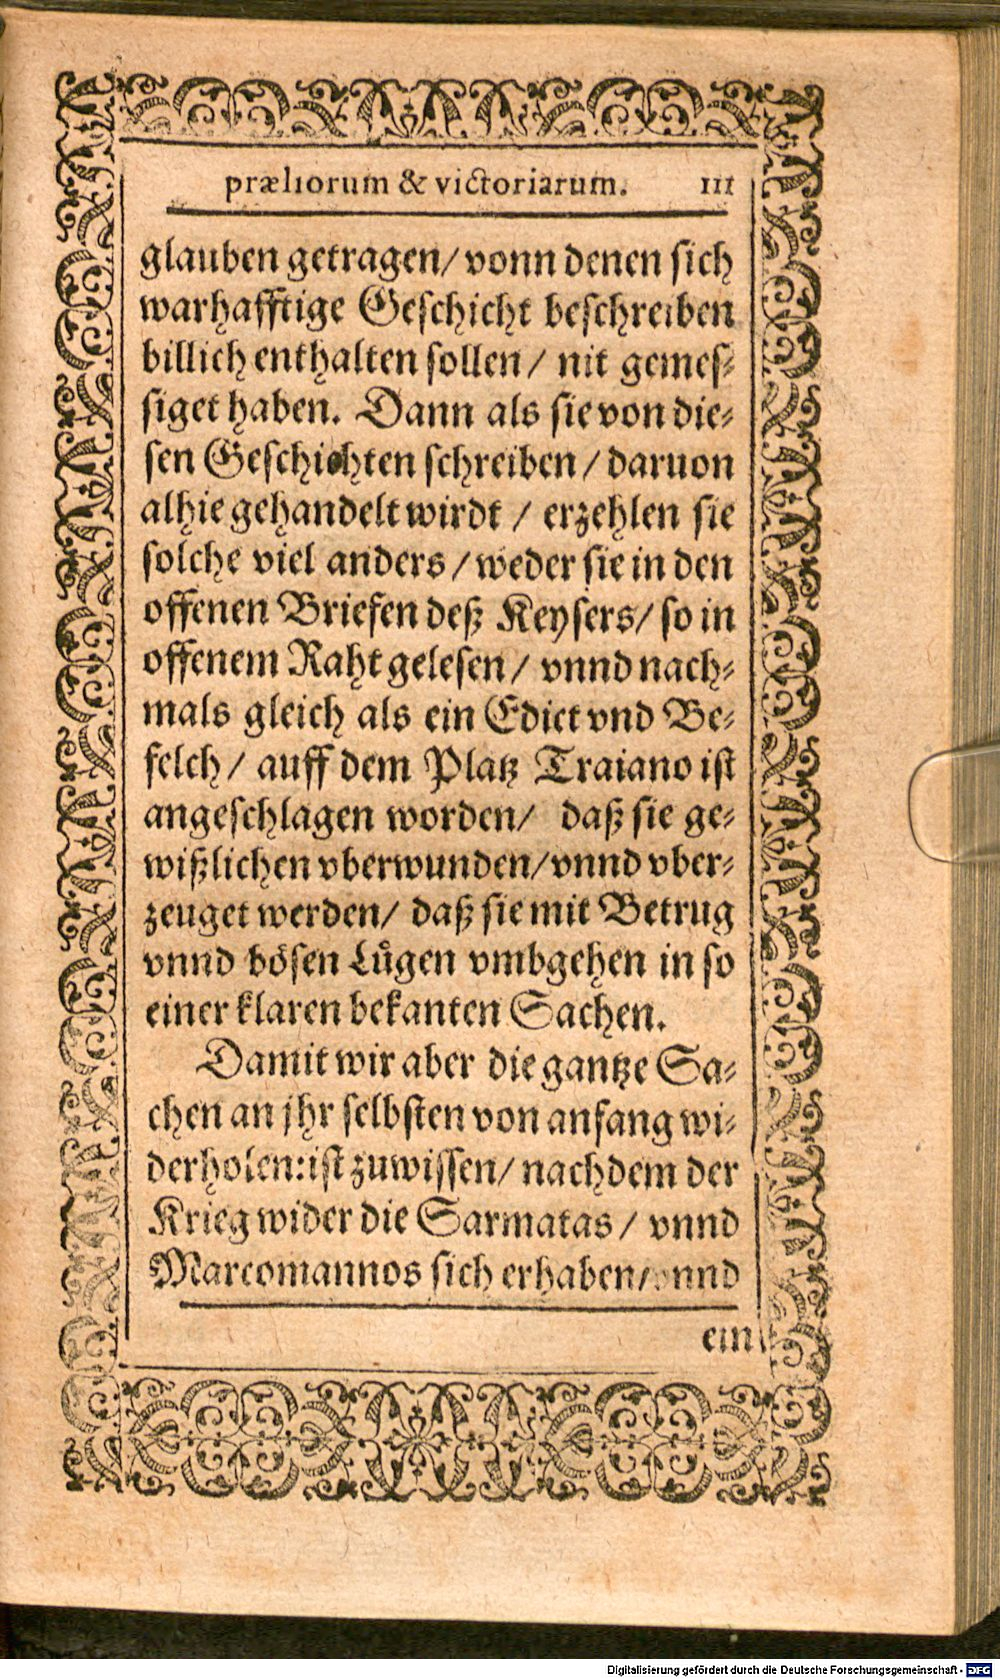 præliorum & victoriarum. 111
glauben getragen/ vonn denen sich
warhafftige Geschicht beschreiben
billich enthalten sollen/ nit gemes-
siget haben. Dann als sie von die-
sen Geschichten schreiben/ daruon
alhie gehandelt wirdt / erzehlen sie
solche viel anders / weder sie in den
offenen Briefen deß Keysers/ so in
offenem Raht gelesen/ vnnd nach-
mals gleich als ein Edict vnd Be-
felch/ auff dem Platz Traiano ist
angeschlagen worden/ daß sie ge-
wißlichen vberwunden/ vnnd vber-
zeuget werden/ daß sie mit Betrug
vnnd bösen Lůgen vmbgehen in so
einer klaren bekanten Sachen.
Damit wir aber die gantze Sa-
chen an jhr selbsten von anfang wi-
derholen: ist zuwissen/ nachdem der
Krieg wider die Sarmatas / vnnd
Marcomannos sich erhaben/ vnnd
ein
Digitalisierung gefördert durch die Deutsche Forschungsgemeinschaft - DFG